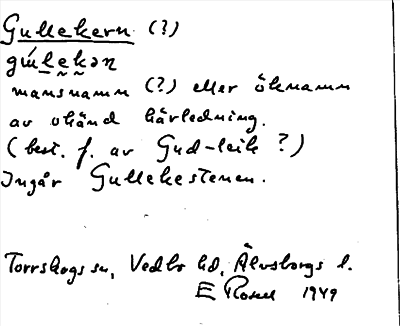 Gullekern (?)
mansnamn (?) eller öknamn
av okänd härledning.
(best. f. av Gud-leik ?)
Ingår Gullekestenen.
Torrskogs sn, Vedbo hd, Älvsborgs l.
E Rosell 1949